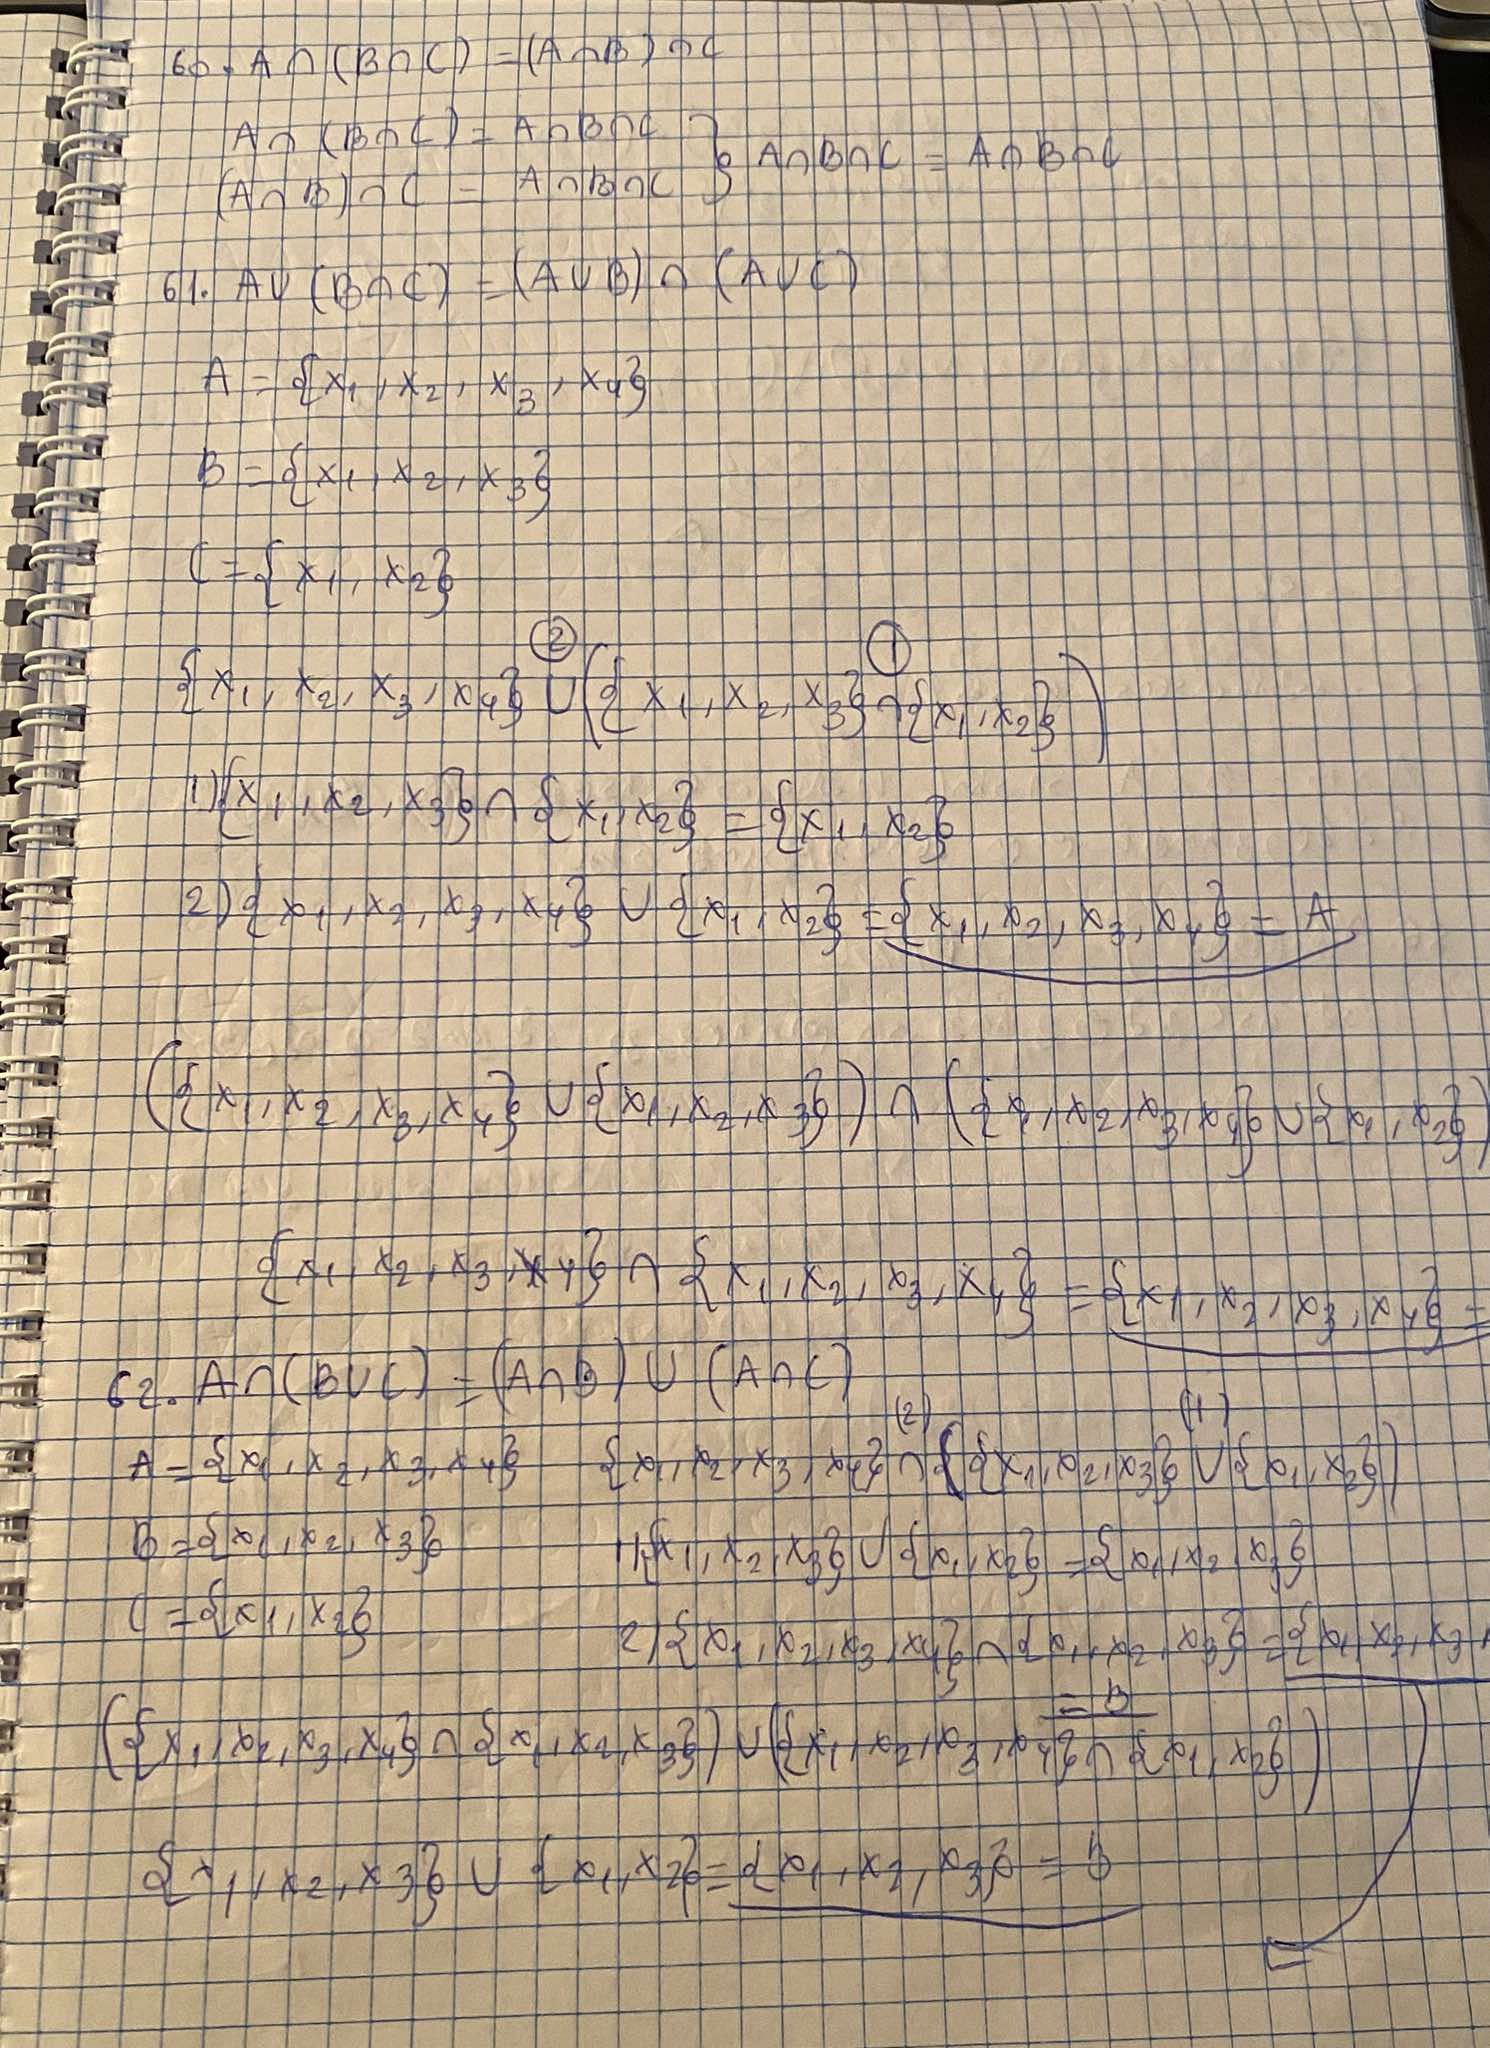 60. A∩(B∩C) = (A∩B)∩C
A∩(B∩C) = A∩B∩C
(A∩B)∩C = A∩B∩C } A∩B∩C = A∩B∩C
61. A∪(B∩C) = (A∪B)∩(A∪C)
A = {x₁, x₂, x₃, x₄}
B = {x₁, x₂, x₃}
C = {x₁, x₂}
② ①
{x₁, x₂, x₃, x₄} ∪ ({x₁, x₂, x₃} ∩ {x₁, x₂})
1) {x₁, x₂, x₃} ∩ {x₁, x₂} = {x₁, x₂}
2) {x₁, x₂, x₃, x₄} ∪ {x₁, x₂} = {x₁, x₂, x₃, x₄} = A
({x₁, x₂, x₃, x₄} ∪ {x₁, x₂, x₃}) ∩ ({x₁, x₂, x₃, x₄} ∪ {x₁, x₂})
{x₁, x₂, x₃, x₄} ∩ {x₁, x₂, x₃, x₄} = {x₁, x₂, x₃, x₄} =
62. A∩(B∪C) = (A∩B) ∪ (A∩C)
(2) (1)
A = {x₁, x₂, x₃, x₄} {x₁, x₂, x₃, x₄} ∩ ({x₁, x₂, x₃} ∪ {x₁, x₂})
B = {x₁, x₂, x₃} 1) {x₁, x₂, x₃} ∪ {x₁, x₂} = {x₁, x₂, x₃}
C = {x₁, x₂} 2) {x₁, x₂, x₃, x₄} ∩ {x₁, x₂, x₃} = {x₁, x₂, x₃
= B
({x₁, x₂, x₃, x₄} ∩ {x₁, x₂, x₃}) ∪ ({x₁, x₂, x₃, x₄} ∩ {x₁, x₂})
{x₁, x₂, x₃} ∪ {x₁, x₂} = {x₁, x₂, x₃} = B